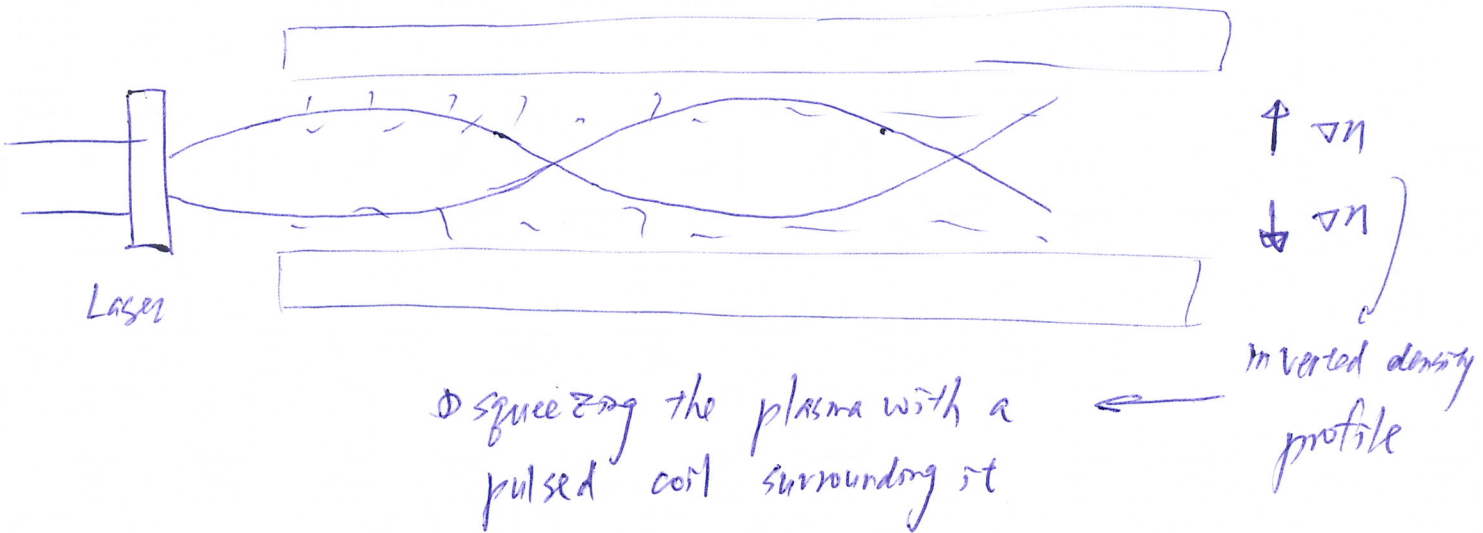 ∇n
∇n
Laser
inverted density
profile
① squeezing the plasma with a
pulsed coil surrounding it